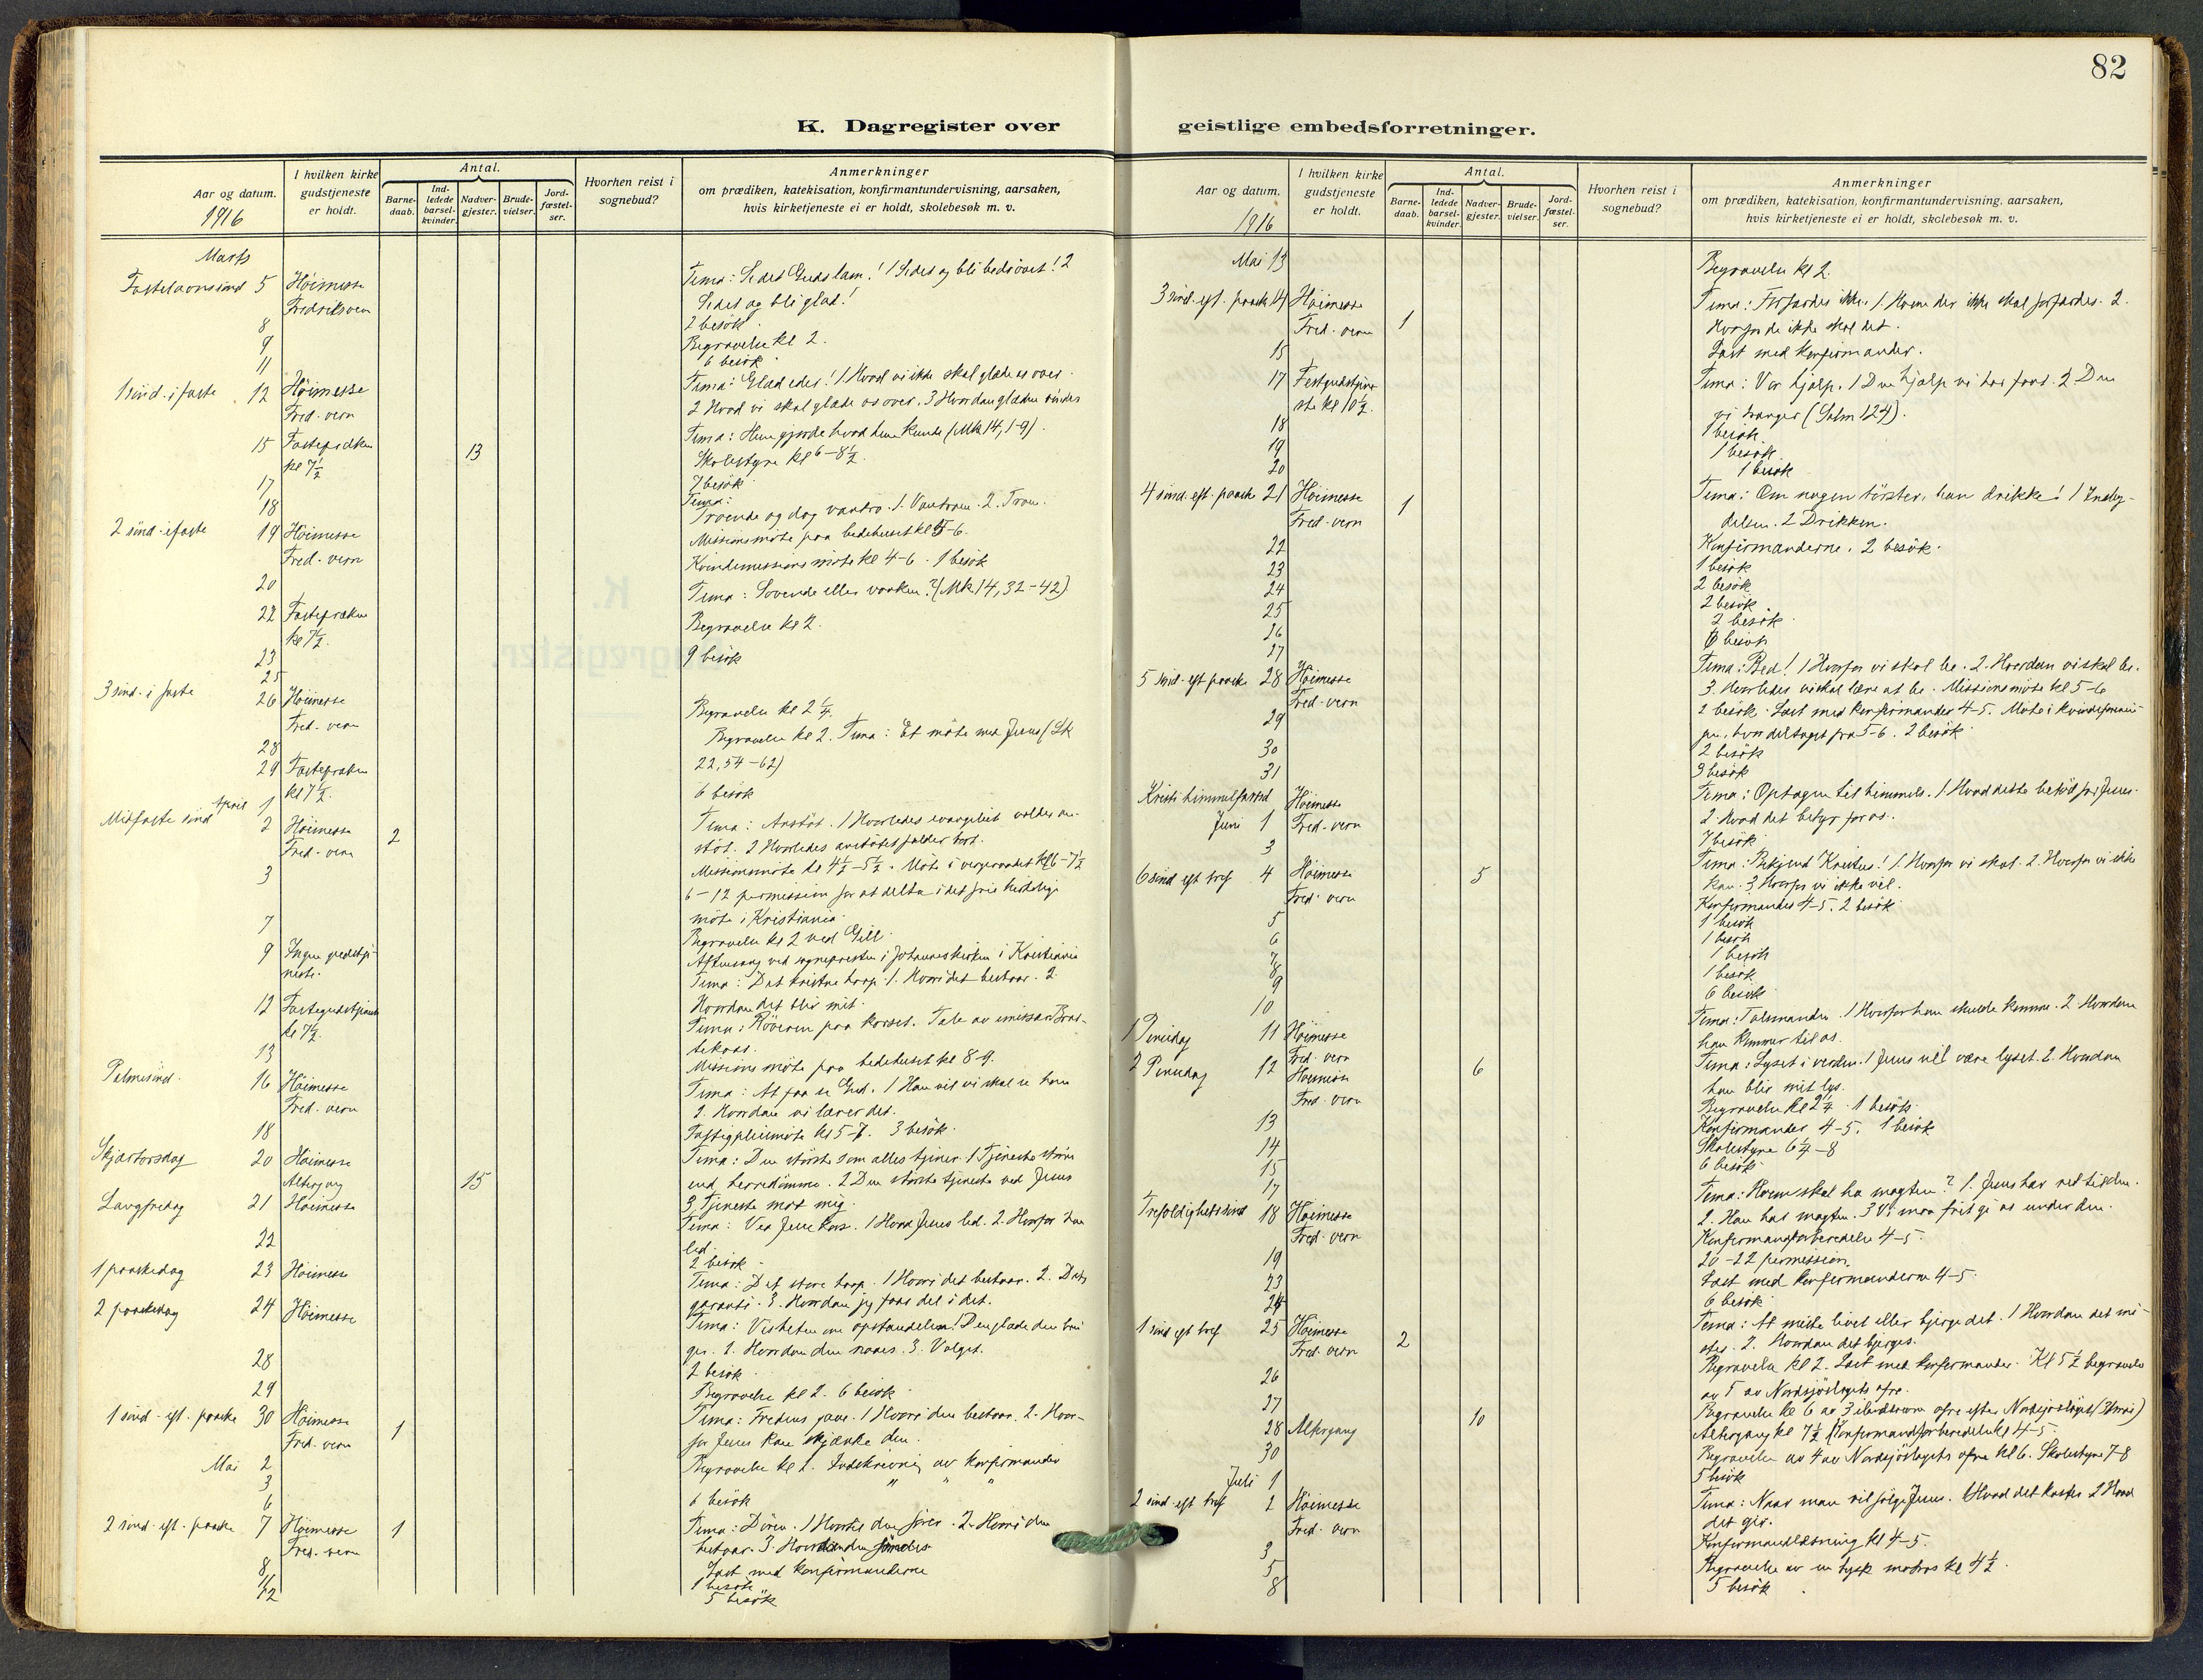 82
K. Dagregister over
geistlige embedsforretninger.
Aar og datum.
1916
I hvilken kirke gudstjeneste er holdt.
Antal.
Barne-daab.
Ind-ledede barsel-kvinder.
Nadver-gjester.
Brude-vielser.
Jord-fæstel-ser.
Hvorhen reist i sognebud?
Anmerkninger
om prædiken, katekisation, konfirmantundervisning, aarsaken,
hvis kirketjeneste ei er holdt, skolebesøk m. v.
Marts
Fastelavnsind 5 Höimesse Tema: Se det Guds lam! 1 Se det og bli bedrövet! 2
Fredriksvern Se det og bli glad!
8 2 besök
9 Begravelse kl 2.
11 6 besök
1 sind. i faste 12 Höimesse Tema: Glæd eder! 1. Hvad vi ikke skal glæde os over
Fred. vern 2 Hvad vi skal glæde os over. 3 Hvordan glæden vindes
15 Fastepræken 13 Tema: Hun gjorde hvad hun kunde (Mk 14, 1-9).
kl 7 1/2 Skolestyre kl 6-8 1/2.
17 7 besök
18 Tema:
2 sind. i faste 19 Höimesse Troende og dog vantro. 1. Vantroen. 2. Troen.
Fred. vern Missionsmöte paa bedehuset kl 5-6.
20 Kvindemissionsmöte kl 4-6. 1 besök
22 Fastepræken Tema: Sovende eller vaaken? (Mk 14, 32-42)
kl 7 1/2. Begravelse kl 2.
23 9 besök
25
3 sind. i faste 26 Höimesse
Fred. vern Begravelse kl 2 1/4.
28 Begravelse kl 2. Tema: Et möte med Jesus (Lk
29 Fastepræken 22, 54-62)
kl 7 1/2. 6 besök
April 1
Midfaste sind 2 Höimesse 2 Tema: Anstöt. 1 Hvorledes evangeliet volder an-
Fred. vern stöt. 2 Hvorledes anstötet falder bort.
3 Missionsmöte kl 4 1/2-5 1/2. Möte i vergeraadet kl 6-7 1/2
6-12 permission for at delta i det frie kirkelige
7 möte i Kristiania.
Begravelse kl 2 ved Gill.
9 Ingen gudstje- Aftensang ved sognepresten i Johanneskirken i Kristiania
neste. Tema: Det kristne haap. 1. Hvori det bestaar. 2
12 Fastegudstjeneste Hvordan det blir mit.
kl 7 1/2. Tema: Röveren paa korset. Tale av emissær Bræk-
13 Missionsmöte paa bedehuset kl 8-9.
Palmesind. 16 Höimesse Tema: At faa se Gud. 1 Han vil vi skal se ham
Fred. vern 2. Hvordan vi lærer det.
18 Fattigpleiemöte kl 5-7. 3 besök.
Skjærtorsdag 20 Höimesse Tema: Den störste som alles tjener. 1 Tjeneste större
Altergang 15 end herredömme. 2 Den störste tjeneste ved Jesus
Langfredag 21 Höimesse 3. Tjeneste mot mig.
Tema: Ved Jesu kors. 1 Hvad Jesus led. 2. Hvorfor han
22 led.
2 besök
1 paaskedag 23 Höimesse Tema: Det store haap. 1 Hvori det bestaar. 2. Dets
garanti. 3. Hvordan jeg faar del i det.
2 paaskedag 24 Höimesse Tema: Visheten om opstandelsen. 1 Den glæde den brin-
ger. 2. Hvordan den naaes. 3. Valget.
28 2 besök
29 Begravelse kl 2. 6 besök
1 sind. eft. paaske 30 Höimesse 1 Tema: Fredens gave. 1 Hvori den bestaar. 2. Hvor-
Fred. vern for Jesus kan skjænke den.
Mai 2 Begravelse kl 2. Indskrivning av konfirmander
3 " " "
6 6 besök
2 sind. eft. paaske 7 Höimesse 1 Tema: Dören. 1 Hvortil den förer. 2. Hvori den
Fred. vern bestaar. 3. Hvordan den findes
8 Læst med konfirmanderne
11 1 besök
12 5 besök
Aar og datum.
1916
I hvilken kirke gudstjeneste er holdt.
Antal.
Barne-daab.
Ind-ledede barsel-kvinder.
Nadver-gjester.
Brude-vielser.
Jord-fæstel-ser.
Hvorhen reist i sognebud?
Anmerkninger
om prædiken, katekisation, konfirmantundervisning, aarsaken,
hvis kirketjeneste ei er holdt, skolebesøk m. v.
Mai 13 Begravelse kl 2.
3 sind. eft. paaske 14 Höimesse Tema: Forfærdes ikke. 1. Hvem der ikke skal forfærdes. 2.
Fred. vern 1 Hvorfor de ikke skal det.
15 Læst med konfirmander.
17 Festgudstjene- Tema: Vor hjælp. 1 Den hjælp vi har faat. 2 Den
ste kl 10 1/2. vi trænger (Salm 124).
18 1 besök
19 1 besök
20 1 besök
4 sind. eft. paaske 21 Höimesse 1 Tema: Om nogen törster, han drikke! 1 Indby-
Fred. vern delsen. 2 Drikken.
22 Konfirmanderne. 2 besök.
23 1 besök
24 2 besök
25 2 besök
26 2 besök
27 6 besök
5 sind. eft paaske 28 Höimesse Tema: Bed! 1 Hvorfor vi skal be. 2. Hvordan vi skal be.
Fred. vern 3. Hvorledes vi skal lære at be. Missionsmöte kl 5-6
29 2 besök. Læst med konfirmander 4-5. Möte i kvindeforenin-
gen, hvor deltaget fra 5-6. 2 besök
30 2 besök
31 3 besök
Kristi himmelfartsd Höimesse Tema: Optagen til himmels. 1 Hvad dette betöd for Jesus.
Juni 1 Fred. vern 2. Hvad det betyr for os.
3 7 besök
6 sind eft 4 Höimesse 5 Tema: Bekjend Kristus! 1. Hvorfor vi skal. 2. Hvorfor vi ikke
Fred. vern kan. 3. Hvorfor vi ikke vil.
5 Konfirmander 4-5. 2 besök
6 1 besök
7 1 besök
8 1 besök
9 1 besök
10 6 besök
1 Pinsedag 11 Höimesse Tema: Talsmanden. 1 Hvorfor han skulde komme. 2 Hvordan
Fred. vern han kommer til os.
2 Pinsedag 12 Höimesse 6 Tema: Lyset i verden. 1 Jesus vil være lyset. 2. Hvordan
Fred. vern han blir mit lys.
13 Begravelse kl 2 1/4. 1 besök
14 Konfirmander 4-5. 1 besök
15 Skolestyre 6 1/4-8
17 6 besök
Trefoldighetssind 18 Höimesse Tema: Hvem skal ha magten? 1. Jesus har ret til den.
Fred. vern 2. Han har magten. 3 Vi maa frit gi os under den.
19 Konfirmandforberedelse 4-5.
20-22 permission.
23 Læst med konfirmanderne 4-5
24 6 besök
1 sind eft tref 25 Höimesse 2 Tema: At miste livet eller bjerge det. 1 Hvordan det mi-
Fred. vern stes. 2. Hvordan det bjerges.
26 Begravelse kl 2. Læst med konfirmander. Kl 5 1/2 begravelse
av 5 av Nordsjöslagets ofre.
27 Begravelse kl 6 av 3 ofre efter Nordsjöslaget
28 Altergang 10 Altergang kl 7 1/2. Konfirmandforberedelse kl 4-5
30 Begravelse av 4 av Nordsjöslagets ofre kl 6. Skolestyre 7-8
Juli 1 5 besök
2 sind. eft tref 2 Höimesse Tema: Naar man vil følge Jesus. 1 Hvad det koster. 2 Hvad
Fred. vern det gir.
3 Konfirmandlæsning kl 4-5.
5 Begravelse av en tysk matros kl 4 1/2.
8 5 besök